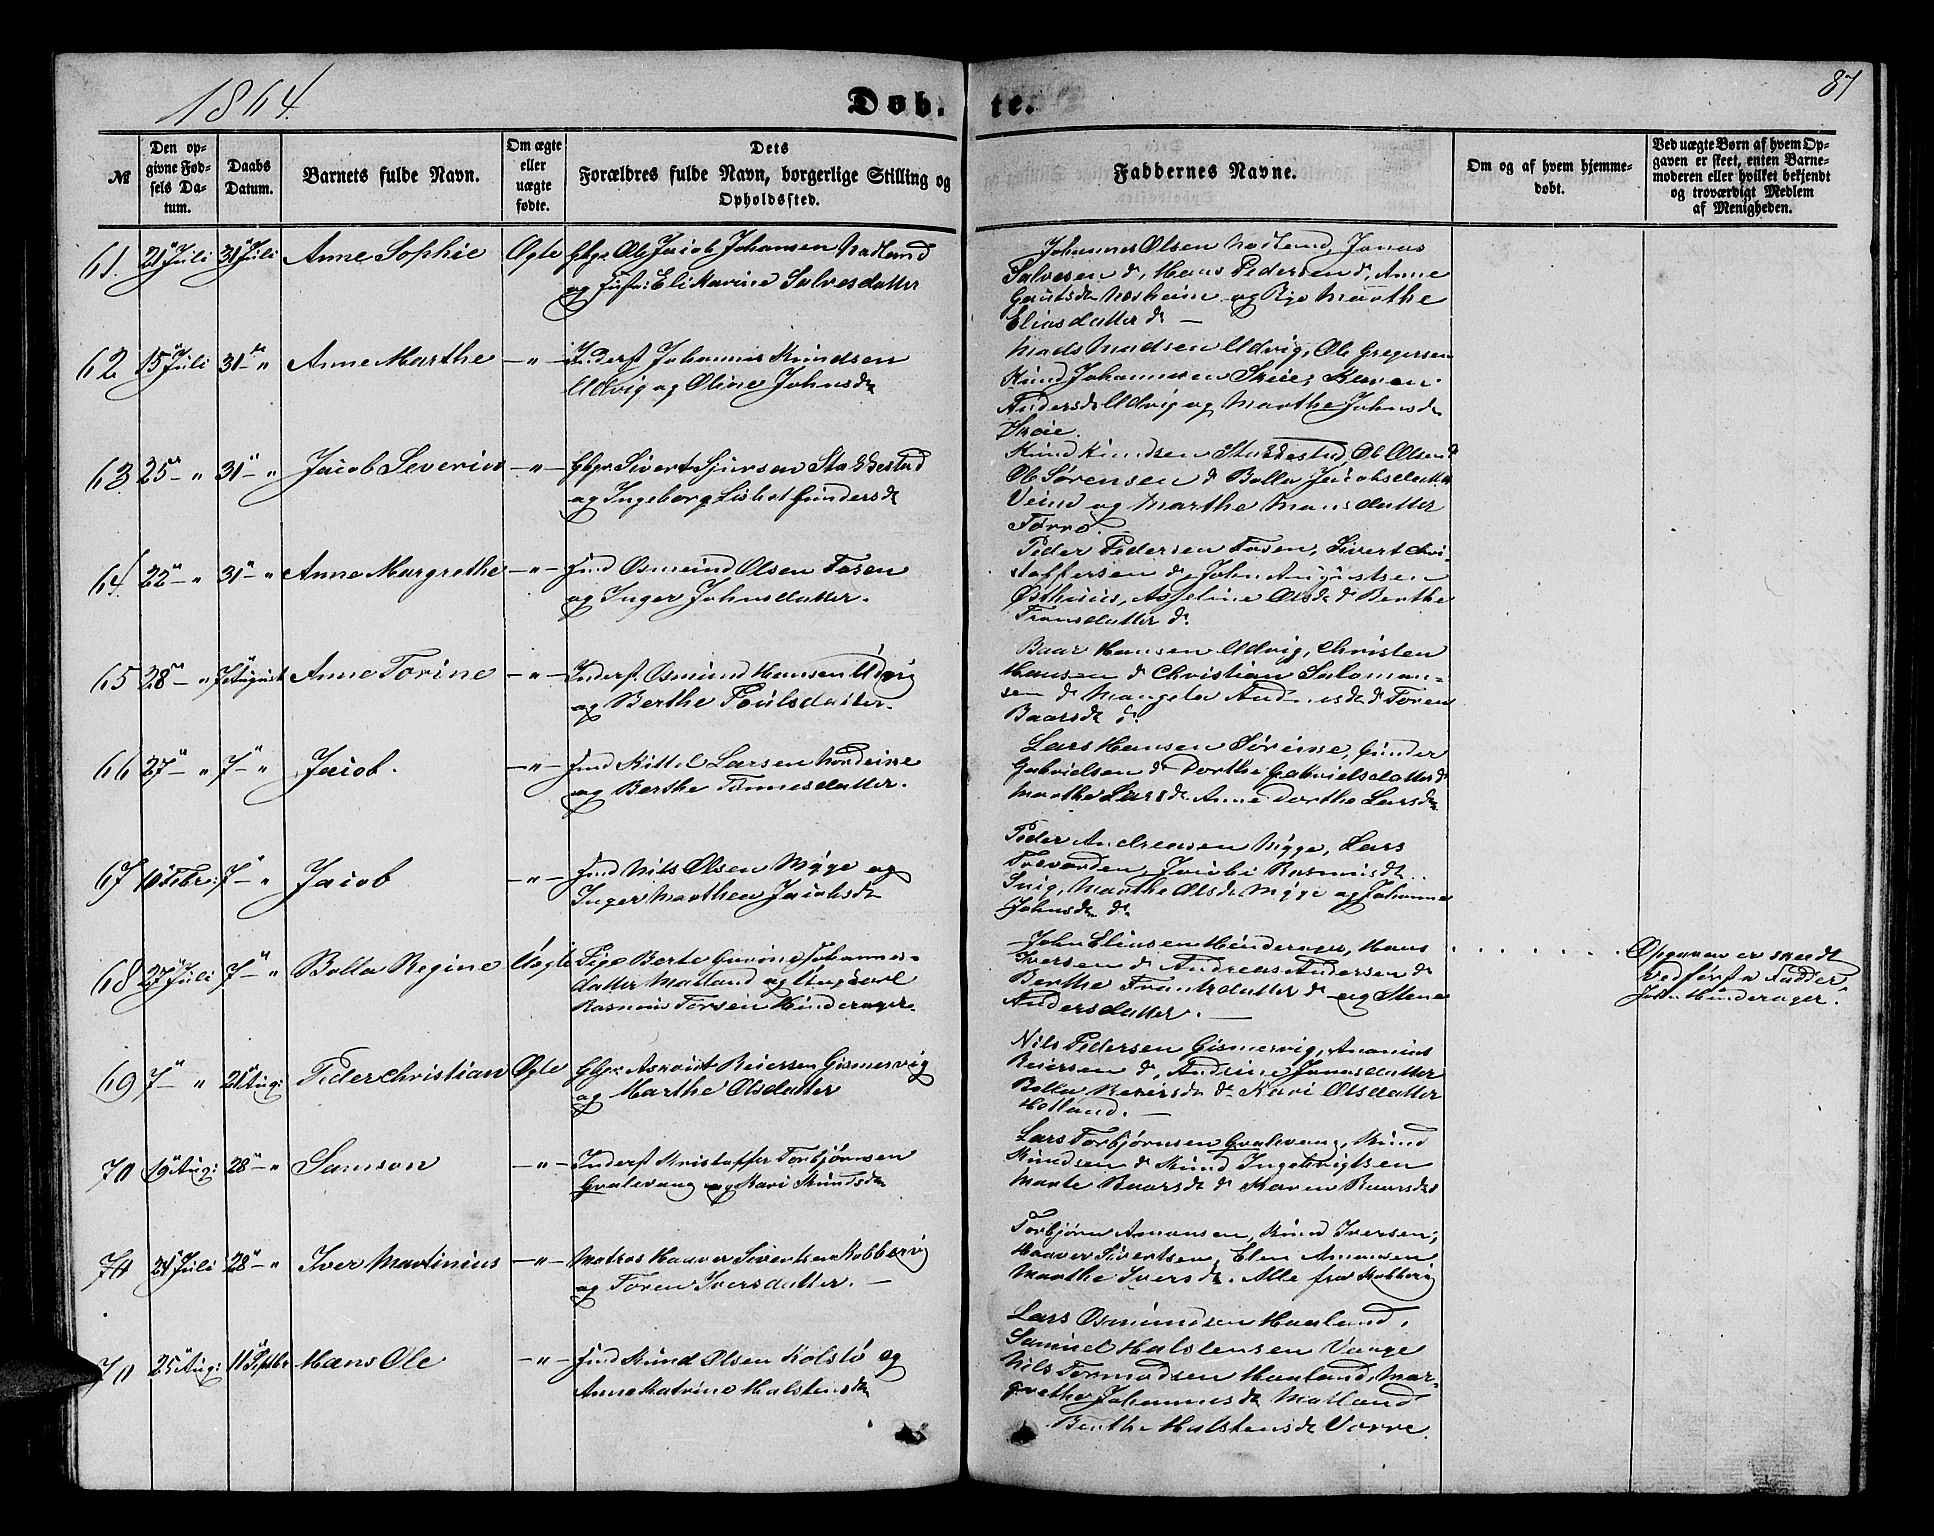 1864.
Døb-
te.
87
№
Den op-
givne Fød-
sels Da-
tum.
Daabs
Datum.
Barnets fulde Navn.
Om ægte
eller
uægte
fødte.
Dets
Forældres fulde Navn, borgerlige Stilling og
Opholdssted.
Faddernes Navne.
Om og af hvem hjemme-
døbt.
Ved uægte Børn af hvem Op-
gaven er skeet, enten Barne-
moderen eller hvilket bekjendt
og troværdigt Medlem
af Menigheden.
61. 21 Juli 31 Juli Anne Sophie Ægte Gbgr Ole Jacob Johansen Nadland
og Eli Karine Salvesdatter
Johannes Olsen Nadland, Jonas
Salvesen d, Hans Pedersen d, Anne
og Pige Marthe
Eliasdatter d —
62 15 Juli 31 — " Anne Marthe — " — Inderst Johannes Knudsen
Udvig og Oline Johnsd
Mads Madsen Udvig, Ole Gregersen
Knud Johannesen Skeie, Karen
Andersd Udvig og Marthe Johnsd
Skeie.
63. 25 — " 31 — " Jacob Severin — " — Gbgr Sivert Sjursen Stakkestad
og Ingeborg Lisbet Gundersd
Knud Knudsen Stakkestad, Ole Olsen d
Ole Sørensen d Bolla Jacobsdatter
og Marthe Hansdatter
64. 22 — " 31 — " Anne Margrethe — " — Osmund Olsen Fosen
og Inger Johnsdatter.
Peder Pedersen Fosen, Sivert Chri-
stoffersen d, John Augustsen
Østhuus, Asseline Olsd d Berthe
Transdatter d.
65 28 — " 7 August Anne Torine — " — Inderst Osmund Hansen Udvig
og Berthe Poulsdatter.
Baar Hansen Udvig, Christen
Hansen d Christian Saloman-
sen d Mangela d Toren
Baarsd d.
66 27 — " 7 — " Jacob. — " — Kittel Larsen Nordeine
og Berthe Tønnesdatter.
Lars Hansen Søreine, Gunder
Gabrielsen d Dorthe Gabrielsdatter d
Marthe Larsd Anne Dorthe Larsd
67 10 Febr: 7 — " Jacob — " — Nils Olsen Myge og
Inger Marthen Jacobsd
Peder Andreasen Myge, Lars
Jacobe Rasmusd
Marthe Olsd Myge og Johanne
Johnsd d
68 27 Juli 7 — " Bolla Regine Uægte Pige Berte Johannes-
datter Matland og Ungkarl
Rasmus Torsen Hinderager.
John Eliasen Hinderager, Hans
Iversen d Andreas Andersen d
Berthe Frantzdatter d og Stene
Andersdatter. —
Opgaven er skeedt
ved første Fadder
John Hinderager.
69 7 — " 21 Aug: Peder Christian Ægte Gbgr: Asbrict Reiersen Gismervig
og Marthe Olsdatter
Nils Pedersen Gismervig, Ananias
Reiersen d, Andrine Jonasdatter
Bolla Reiersd d Kari Olsdatter
Holland. —
70 19 Aug: 28 — " Samson — " — Inderst Kristoffer Torbjørnsen
Gralevang og Kari Knudsd
Lars Torbjørnsen Gralevang, Knud
Knudsen d Knud Ingebrigtsen
Marte Baarsd d Karen Baarsd d
71 24 Juli 28 — " Iver Martinius — " — Matros Haaver Sivertsen Kobbervig
og Toren Iversdatter. —
Torbjørn Amonsen, Knud Iversen,
Haaver Sivertsen, Elen Amonsen
Marthe Iversd. Alle fra Kobbervig
70 25 Aug: 11 Septbr Hans Ole — " — Knud Olsen Kolstø og
Anne Katrine Halstensd
Lars Osmundsen Haaland,
Samuel Halstensen Vaage
Nils Tormodsen Haaland, Mar-
grethe Johannesd Matland
Berthe Halstensd Vorre.